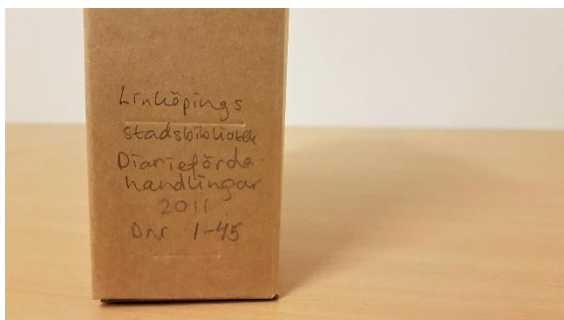 Linköpings
stadsbibliotek
Diarieförda
handlingar
2011
Dnr 1-45